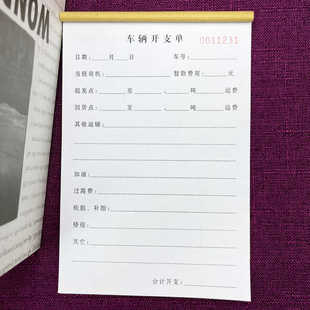 WONDE
车辆开支单
0011231
日期：____月____日 车号：
当班司机： 暂取费用：____元
起发点：____至____，____吨____运费
回货点：____至____，____吨____运费
其他运输：
加油：
过路费：
轮胎、补胎：
修理：
其它：
合计开支：